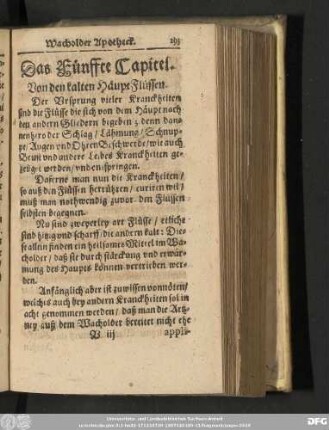 Wacholder Apotheck. 193
Das Fünffte Capitel.
Von den kalten Häupt Flüssen.
Der Vrsprung vieler Kranckheiten
sind die Flüsse die sich von dem Häupt nach
den andern Gliedern begeben; denn dan-
nenhero der Schlag / Lähmung / Schnup-
pe / Augen vnd Ohren Beschwerde / wie auch
Brust vnd andere Leibes Kranckheiten ge-
zeuget werden / vnd entspringen.
Daferne man nun die Kranckheiten /
so auß den Flüssen herrühren / curiren wil /
muß man nothwendig zuvor den Flüssen
selbsten begegnen.
Nu sind zweyerley art Flüsse / etliche
sind hitzig vnd scharff / die andern kalt: Die-
se allen finden ein heilsames Mittel im Wa-
cholder / daß sie durch stärckung vnd erwär-
mung des Haupts können vertrieben wer-
den.
Anfänglich aber ist zuwissen vonnöten /
welches auch bey andern Kranckheiten sol in
acht genommen werden / daß man die Artz-
ney auß dem Wacholder bereitet nicht ehe
iij appli-